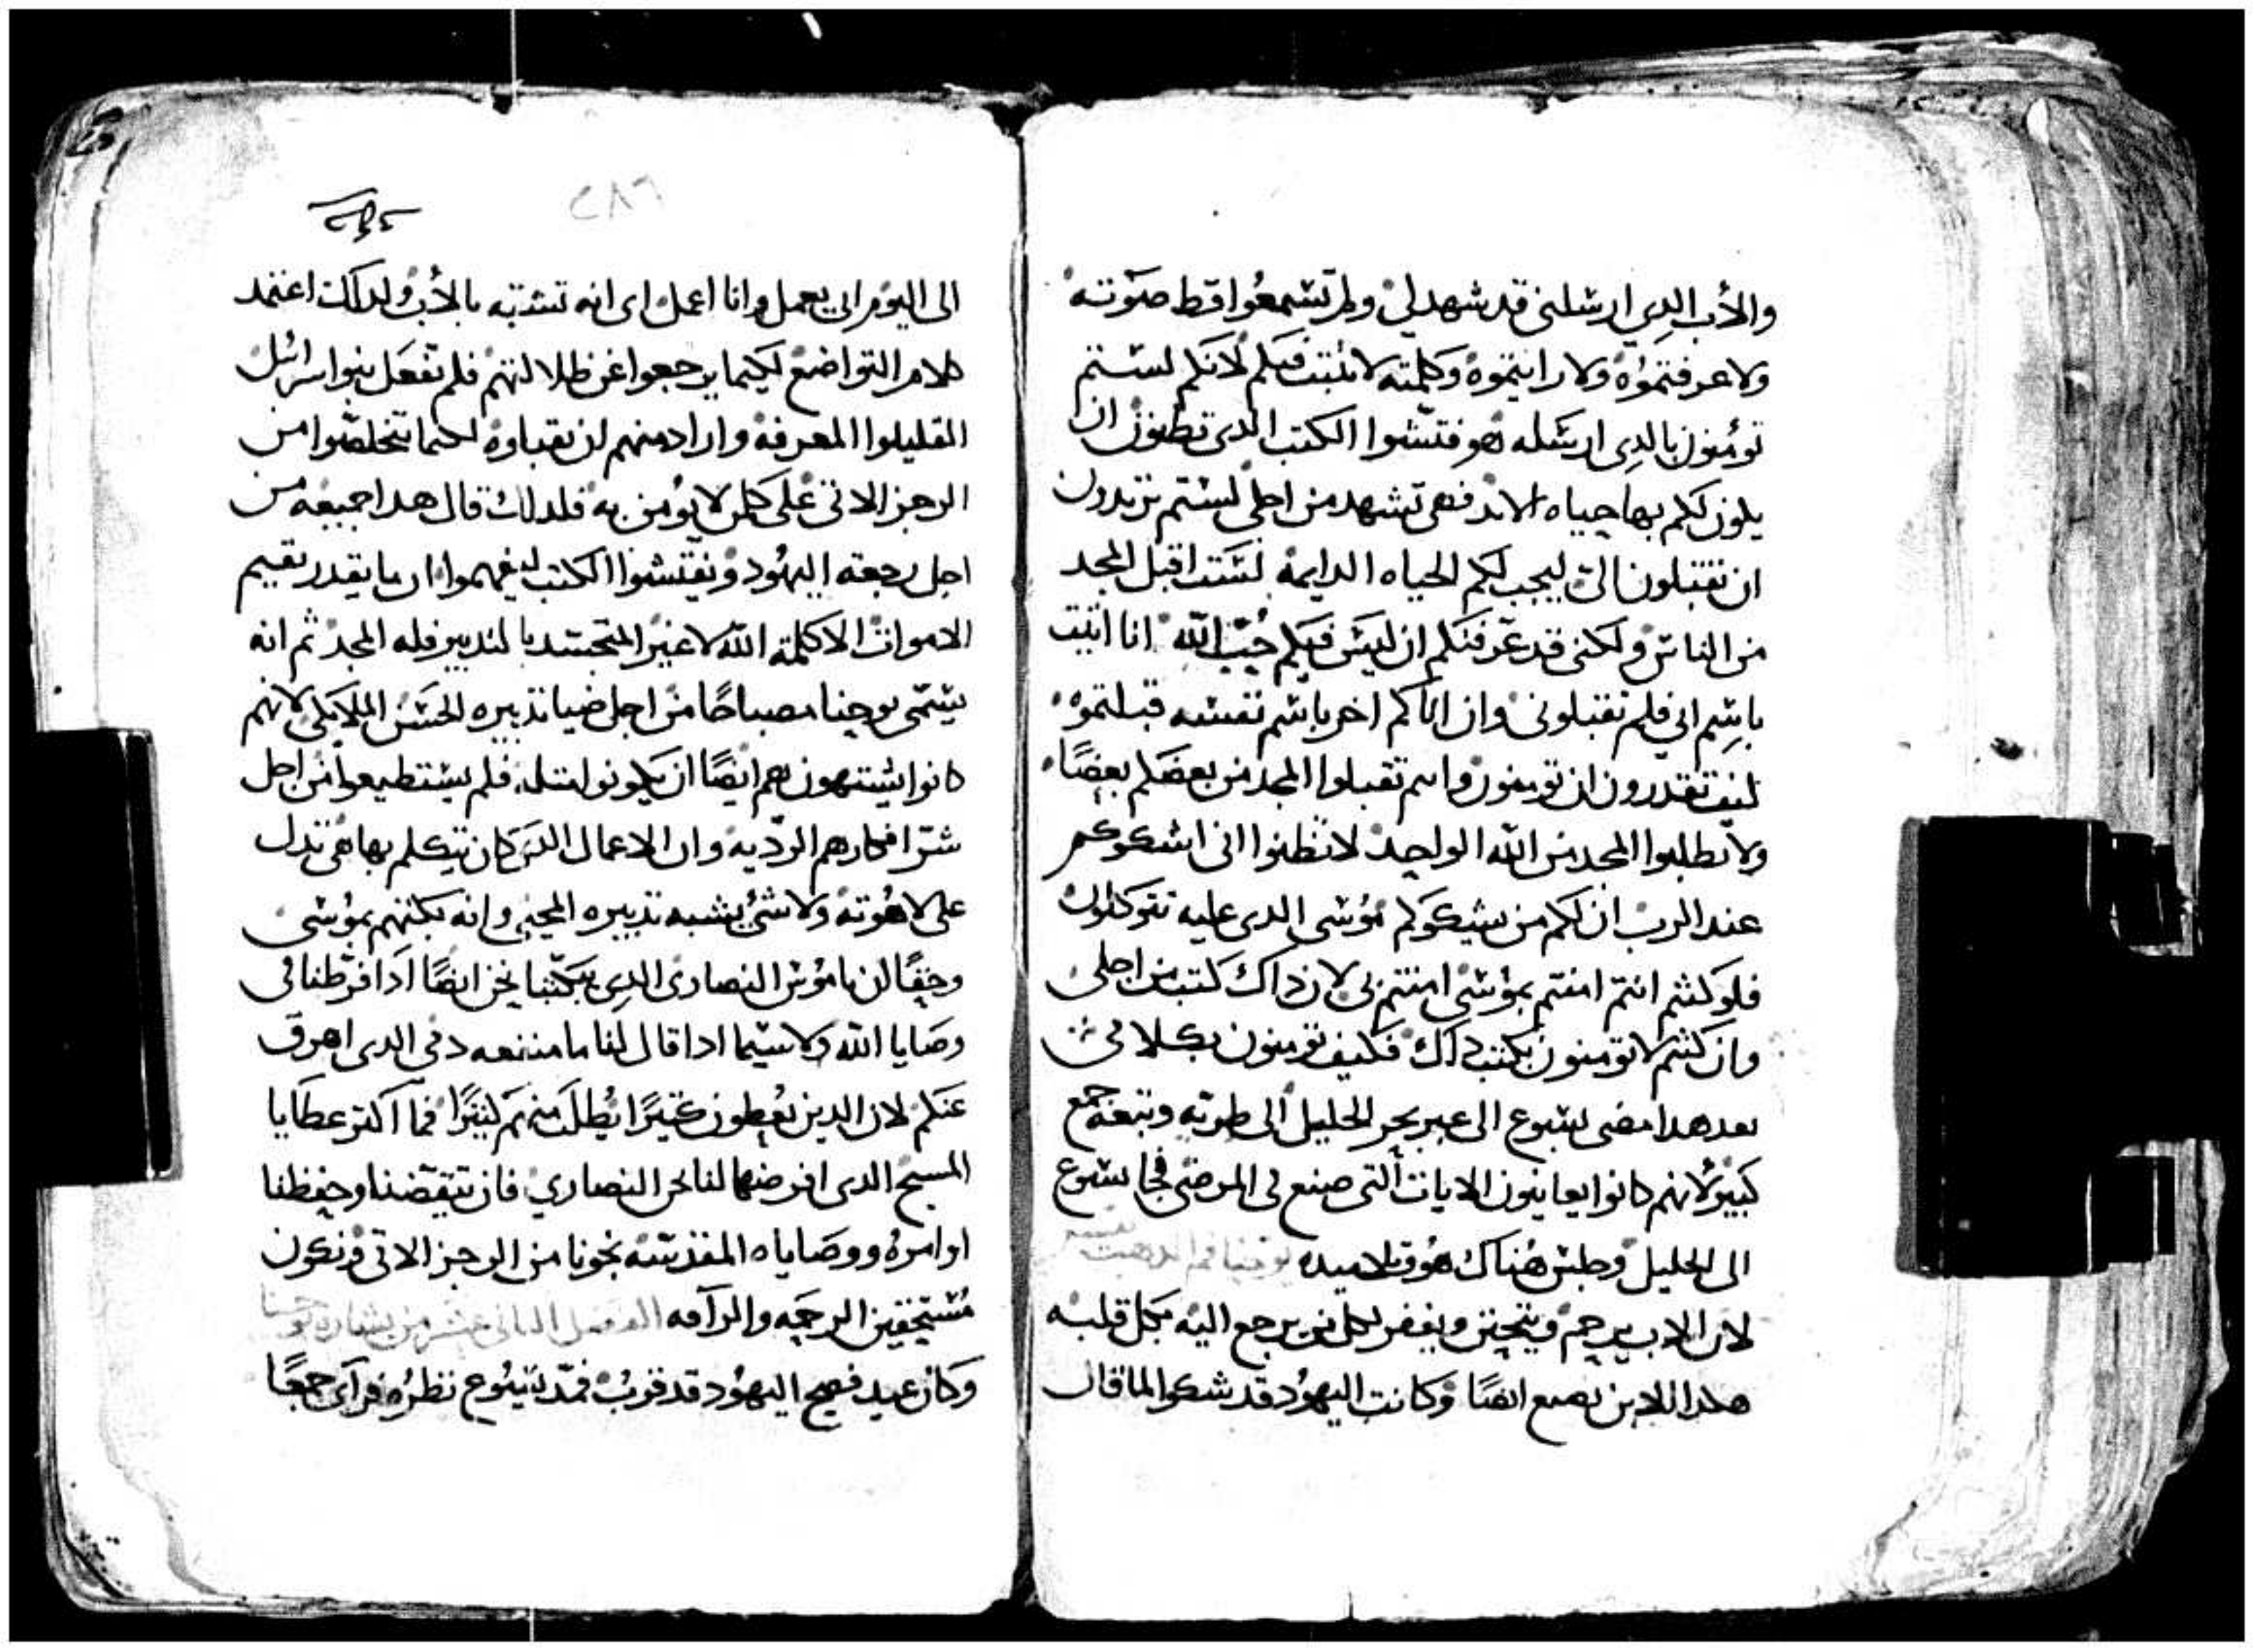 والأب الدي ارسلني قد شهد لي ولم تسمعوا قط صوته
ولا عرفتموه ولا رايتموه وكلمته لا تثبت فيكم لانكم لستم
تومنون بالدي ارسله هو فتشوا الكتب الدي تظنون ان
يكون لكم بها حياه الابد فهي تشهد من اجلي لستم تريدون
ان تقبلون الي ليجب لكم الحياه الدايمه لست اقبل المجد
من الناس ولكني قد عرفتكم ان ليس فيكم حب الله انا اتيت
باسم ابي فلم تقبلوني وان اتاكم اخر باسم نفسه قبلتموه
كيف تقدرون ان تومنون وانتم تقبلوا المجد من بعضكم بعضًا
ولا تطلبوا المجد من الله الواحد لا تظنوا اني اشكوكم
عند الرب ان لكم من يشكوكم موسى الدي عليه تتوكلون
فلو كنتم انتم امنتم بموسى امنتم بي لان داك كتب من اجلي
وان كنتم لا تومنون بكتب داك فكيف تومنون بكلامي
بعد هدا مضى يسوع الى عبر بحر الجليل الى طبريه وتبعه جمع
كبير لانهم كانوا يعاينون الايات التي صنع في المرضى فجا يسوع
الى الجليل وجلس هناك هو وتلاميده يوحنا فم الدهب تفسير
لان الاب يرحم ويتحنن ويغفر لكل من يرجع اليه بكل قلبه
هكدا الابن يصنع ايضًا وكانت اليهود قد شكوا لما قال
٢٨٦
الى اليوم ابي يعمل وانا اعمل اي انه تشبه بالأب ولدلك اعتمد
كلام التواضع لكيما يرجعوا عن ظلالتهم فلم تفعل بنوا سرائيل
القليلوا المعرفة واراد منهم لن يقبلوه لكيما يتخلصوا من
الرجز الاتي على كل من لا يومن به فلدلك قال هدا جميعه من
اجل رجعة اليهود ويفتشوا الكتب ليفهموا ان ما يقدر يقيم
الاموات الا كلمة الله لا غير المتجسد بالتدبير فله المجد ثم انه
يسمى يوحنا مصباحًا من اجل ضيا تدبيره الحسن الملايكي لانهم
كانوا يشتهون هم ايضًا ان يكونوا متله فلم يستطيعوا من اجل
شر افكارهم الرديه وان الاعمال التي كان يتكلم بها هي تدل
على لاهوته ولا شئ يشبه تدبيره المحيي وانه بكتهم بموسى
وحقًا لن ناموس النصارى الدي يبكتنا نحن ايضًا ادا فرطنا في
وصايا الله ولا سيما ادا قال لنا ما منفعه دمي الدي اهرق
عنكم لان الدين يعطون كتيرًا يطلب منهم كتيرًا فما اكتر عطايا
المسيح الدي افرضها لنا نحن النصاري فان تيقضنا وحفظنا
اوامره ووصاياه المقدسه نجونا من الرجز الاتي ونكون
مستحقين الرحمه والرآفه الفصل الثاني عشر من بشارة يوحنا
وكان عيد فصح اليهود قد قرب فمد يسوع نظره فرآى جمعًا